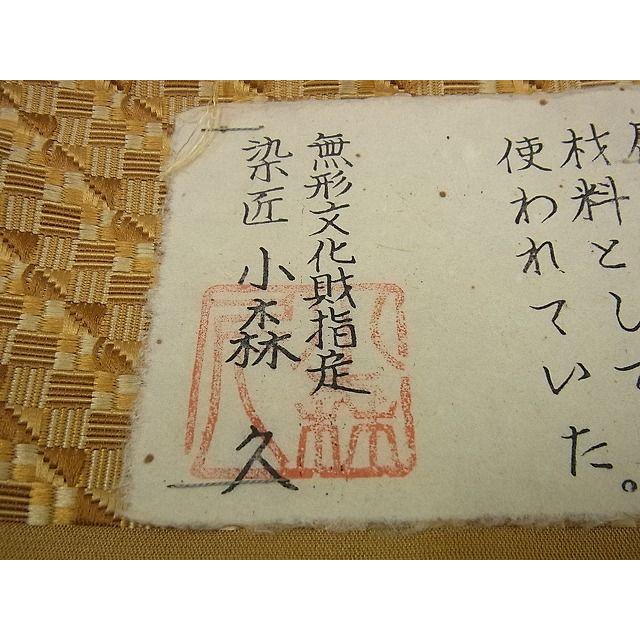 材料として
使われていた。
無形文化財指定
染匠 小森 久